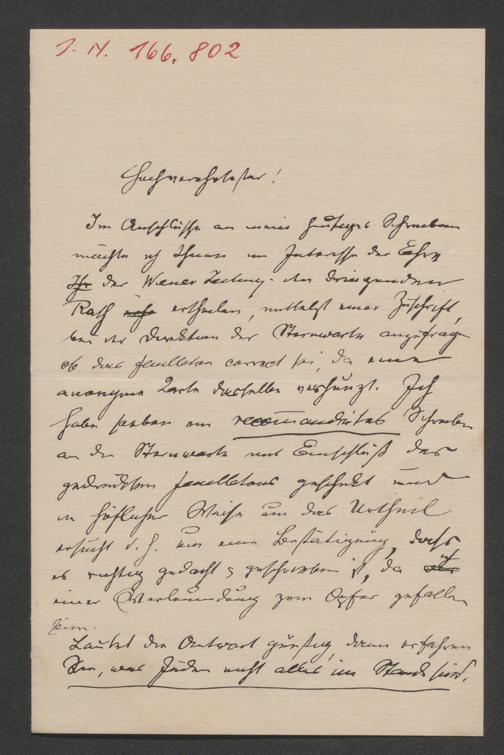 J. N. 166.802
Hochverehrtester!
Im Anschlusse an mein heutiges Schreiben
möchte ich Ihnen im Interesse der Ehre
Ihr der Wiener Zeitung den dringenden
Rath ertheilen, mittelst einer Zuschrift,
bei der Direktion der Sternwarte anzufragen
ob das Feuilleton correct sei, da eine
anonyme Karte dasselbe verhunzt. Ich
habe soeben ein recommandirtes Schreiben
an die Sternwarte mit Einschluß des
gedruckten Feuilletons geschickt und
in höflicher Weise um das Urtheil
ersucht d. h. um eine Bestätigung, dass
es richtig gedacht & geschrieben ist, da
einer Verleumdung zum Opfer gefallen
Lautet die Antwort günstig, dann erfahren
Sie, was Juden nicht alles im Stande sind.